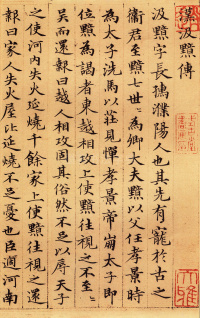 漢汲黯傳
汲黯字長孺濮陽人也其先有寵於古之
衛君至黯七世〻為卿大夫黯以父任孝景時
為太子洗馬以莊見憚孝景帝崩太子即
位黯為謁者東越相攻上使黯往視之不至〻
吳而還報曰越人相攻固其俗然不足以辱天子
之使河內失火延燒千餘家上使黯往視之還
報曰家人失火屋比延燒不足憂也臣過河南